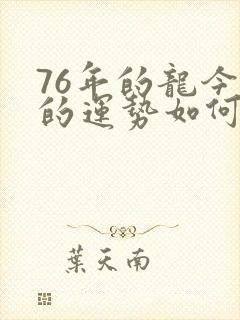 76年的龍今
的運勢如何
葉天南